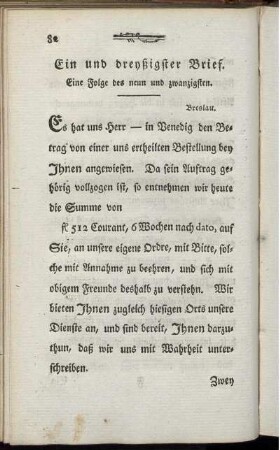 82
Ein und dreyßigster Brief.
Eine Folge des neun und zwanzigsten.
Breslau.
Es hat uns Herr — in Venedig den Be-
trag von einer uns ertheilten Bestellung bey
Ihnen angewiesen. Da sein Auftrag ge-
hörig vollzogen ist, so entnehmen wir heute
die Summe von
fl 512 Courant, 6 Wochen nach dato, auf
Sie, an unsere eigene Ordre, mit Bitte, sol-
che mit Annahme zu beehren, und sich mit
obigem Freunde deshalb zu verstehn. Wir
bieten Ihnen zugleich hiesigen Orts unsere
Dienste an, und sind bereit, Ihnen darzu-
thun, daß wir uns mit Wahrheit unter-
schreiben.
Zwey